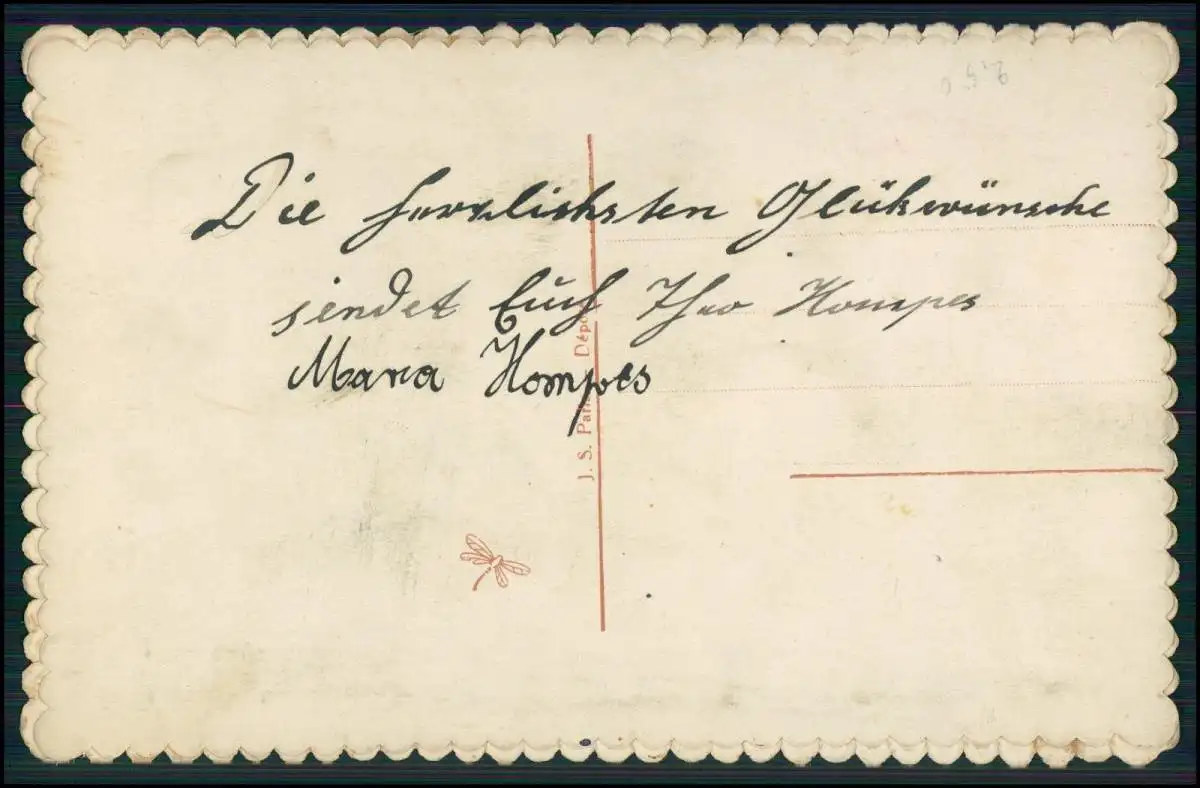 Die herzlichsten Glükwünsche
sendet Euch Theo Hompes
Maria Hompes
J. S. Paris Dépo